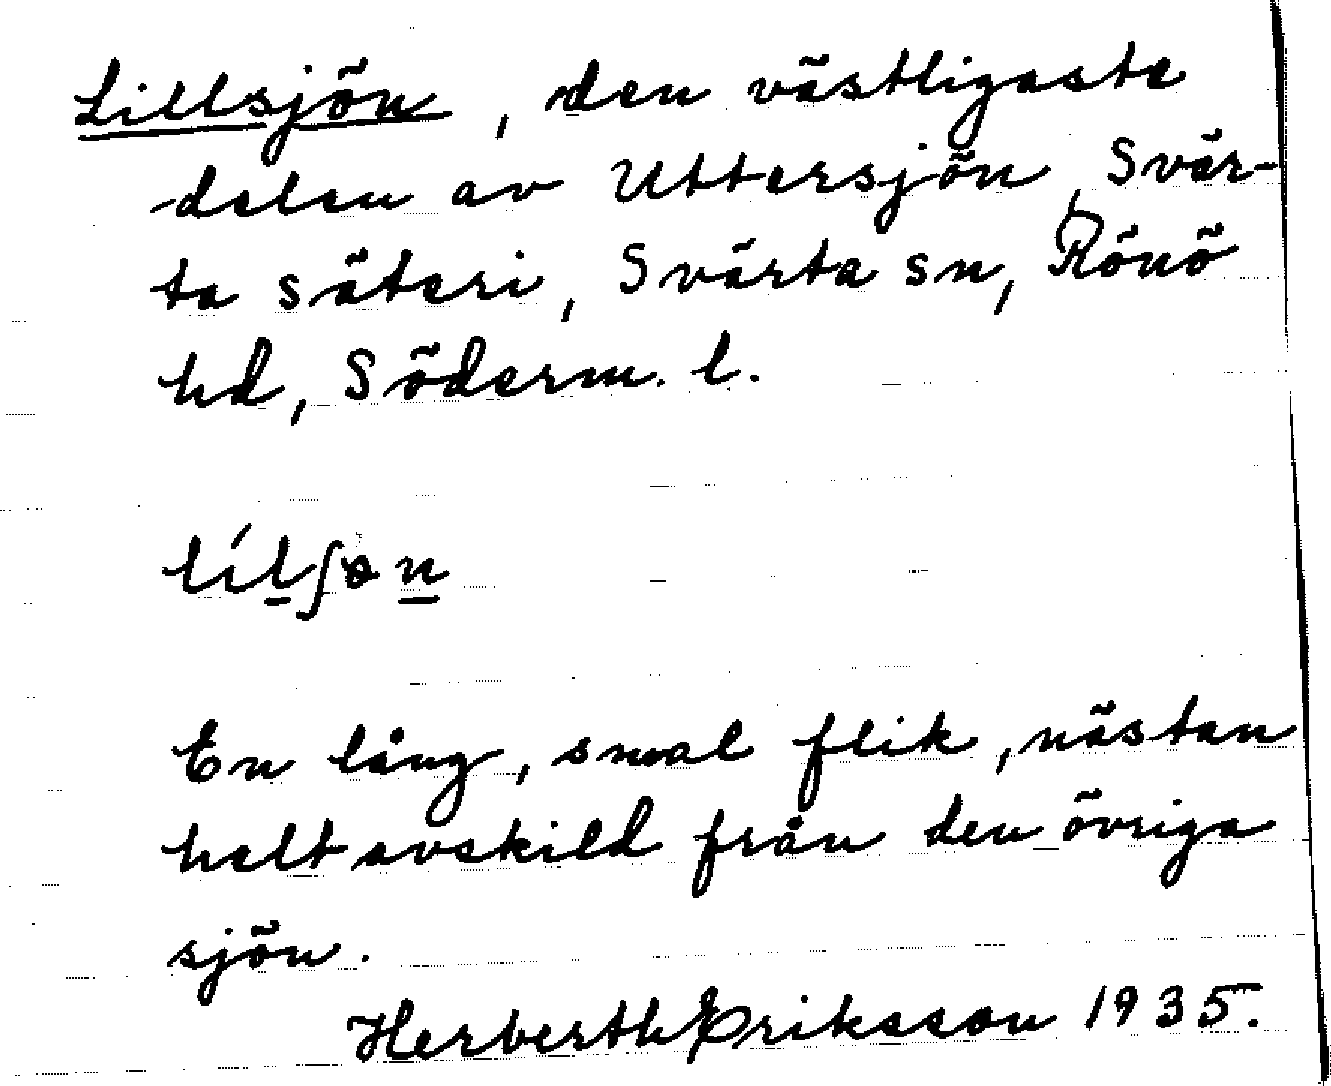 Lillsjön, den västligaste
delen av Uttersjön, Svär-
ta säteri, Svärta sn, Rönö
hd, Söderm. l.
lílʃɵn
En lång, smal flik, nästan
helt avskild från den övriga
sjön.
Herberth Eriksson 1935.